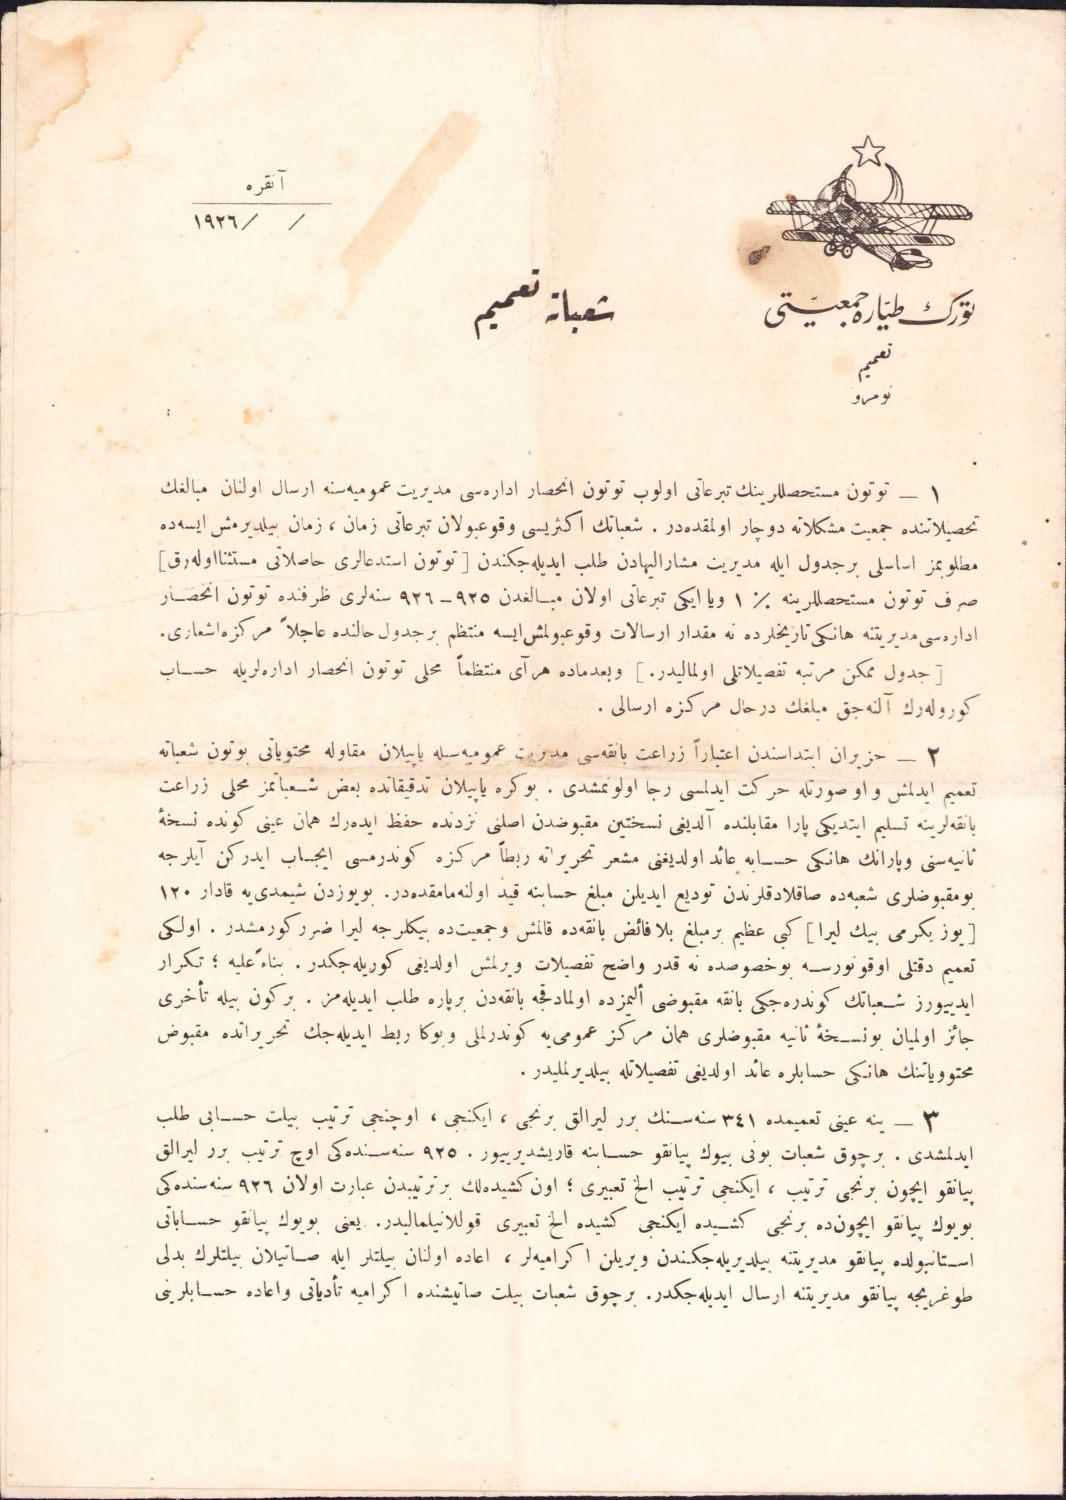 آنقره
/ / ١٩٢٦
تورك طيّاره جمعيّتى
تعميم
نومرو
شعباته تعميم
١ — توتون مستحصللرينك تبرعاتى اولوب توتون انحصار اداره‌سى مديريت عموميه‌سنه ارسال اولنان مبالغك
تحصيلاتنده جمعيت مشكلاته دوچار اولمقده‌در . شعباتك اكثريسى وقوعبولان تبرعاتى زمان ، زمان بيلديرمش ايسه‌ده
مطلوبمز اساسلى برجدول ايله مديريت مشاراليهادن طلب ايديله‌جكندن [ توتون استدعالرى حاصلاتى مستثنااوله‌رق ]
صرف توتون مستحصللرينه ٪ ١ ويا ايكى تبرعاتى اولان مبالغدن ٩٢٥ــ٩٢٦ سنه‌لرى ظرفنده توتون انحصار
اداره‌سى مديريتنه هانكى تاريخلرده نه مقدار ارسالات وقوعبولمش‌ايسه منتظم برجدول حالنده عاجلاً مركزه اشعارى.
[ جدول ممكن مرتبه تفصيلاتلى اولماليدر. ] وبعدماده هرآى منتظماً محلى توتون انحصار اداره‌لريله حساب
كوروله‌رك آلنه‌جق مبلغك درحال مركزه ارسالى .
٢ — حزيران ابتداسندن اعتباراً زراعت بانقه‌سى مديريت عموميه‌سيله ياپيلان مقاوله محتوياتى بوتون شعباته
تعميم ايدلمش و او صورتله حركت ايدلمسى رجا اولونمشدى . بوكره ياپيلان تدقيقاتده بعض شعباتمز محلى زراعت
بانقه‌لرينه تسليم ايتديكى پارا مقابلنده آلديغى نسختين مقبوضدن اصلنى نزدنده حفظ ايده‌رك همان عينى كونده نسخهٔ
ثانيه‌سنى وپارانك هانكى حسابه عائد اولديغنى مشعر تحريراته ربطاً مركزه كوندرمسى ايجاب ايدركن آيلرجه
بومقبوضلرى شعبه‌ده صاقلادقلرندن توديع ايديلن مبلغ حسابنه قيد اولنه‌مامقده‌در. بويوزدن شيمدى‌يه قادار ١٢٠
[ يوز يكرمى بيك ليرا ] كبى عظيم برمبلغ بلافائض بانقه‌ده قالمش وجمعيت‌ده بيكلرجه ليرا ضرر كورمشدر . اولكى
تعميم دقتلى اوقونورسه بوخصوصده نه قدر واضح تفصيلات ويرلمش اولديغى كوريله‌جكدر . بناءً عليه ؛ تكرار
ايدييورز شعباتك كوندره‌جكى بانقه مقبوضى أليمزده اولمادقجه بانقه‌دن برپاره طلب ايديله‌مز . بركون بيله تأخرى
جائز اولميان بونسخهٔ ثانيه مقبوضلرى همان مركز عمومى‌يه كوندرلملى وبوكا ربط ايديله‌جك تحريراتده مقبوض
محتووياتنك هانكى حسابلره عائد اولديغى تفصيلاتله بيلديرلمليدر .
٣ — ينه عينى تعميمده ٣٤١ سنه‌سنك برر ليرالق برنجى ، ايكنجى ، اوچنجى ترتيب بيلت حسابى طلب
ايدلمشدى . برچوق شعبات بونى بيوك پيانقو حسابنه قاريشديرييور . ٩٢٥ سنه‌سنده‌كى اوچ ترتيب برر ليرالق
پيانقو ايچون برنجى ترتيب ، ايكنجى ترتيب الخ تعبيرى ؛ اون كشيده‌لك برترتيبدن عبارت اولان ٩٢٦ سنه‌سنده‌كى
بويوك پيانقو ايچون‌ده برنجى كشيده ايكنجى كشيده الخ تعبيرى قوللانيلماليدر. يعنى بويوك پيانقو حساباتى
استانبولده پيانقو مديريتنه بيلديريله‌جكندن ويريلن اكراميه‌لر ، اعاده اولنان بيلتلر ايله صاتيلان بيلتلرك بدلى
طوغريجه پيانقو مديريتنه ارسال ايديله‌جكدر. برچوق شعبات بيلت صاتيشنده اكراميه تأدياتى واعاده حسابلرينى